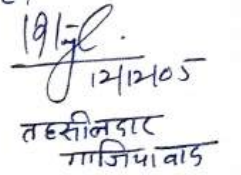 12/12/05
तहसीलदार
गाजियाबाद